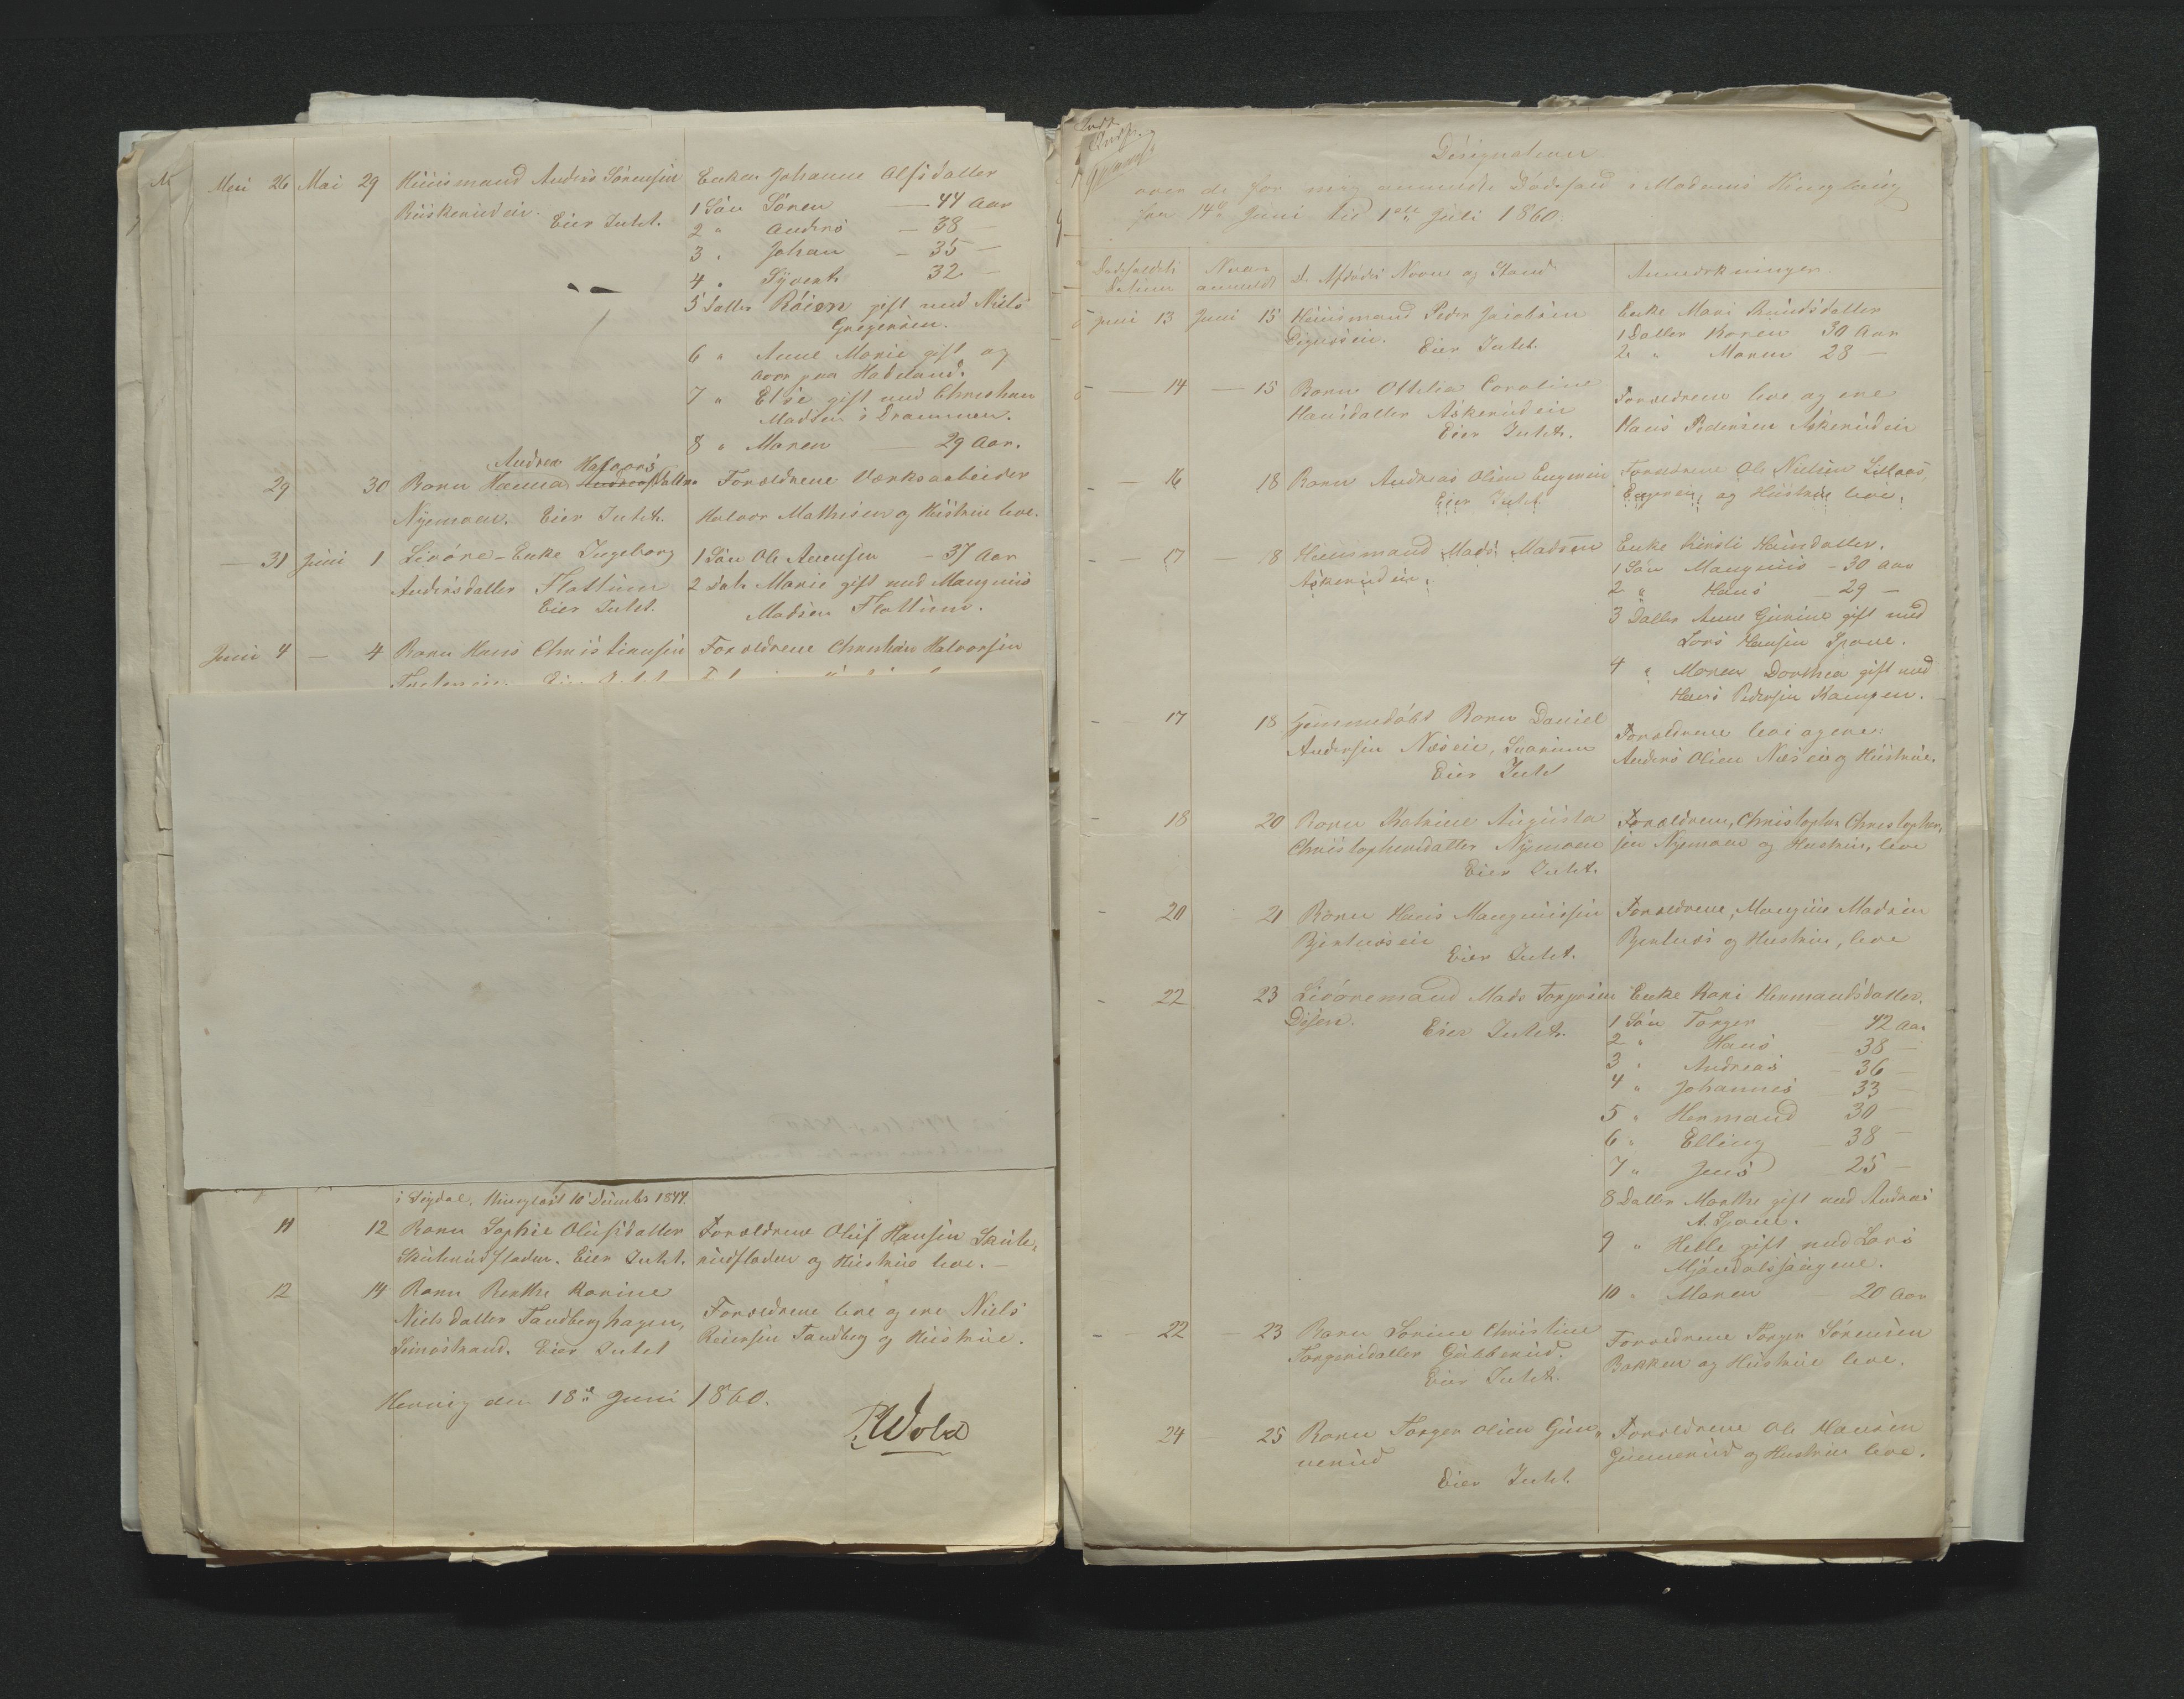 Mai 26 Mai 29 Huusmand Anders Sörensen Enken Johanne Alfsdatter
Ruskerudeie. 1 Sön Sören — 44 Aar
Eier Intet. 2 " Anders — 38 —
3 " Johan — 35 —
4 " Syvert 32 —
5 Datter gift med Niels
Gregersen.
6 " Anne Marie gift og
paa Hadeland.
7 " Else gift med Christian
Madsen i Drammen.
8 " Maren — 29 Aar.
Andrea Halvors
29 30 Barn Hanna datter Forældrene Værksarbeider
Nymoen. Eier Intet. Halvor Mathisen og Hustrue leve.
— 31 Juni 1 Livöre-Enke Ingeborg 1 Sön Ole Amundsen — 37 Aar
Andersdatter Flattum 2 Dat. Marie gift med Mangnus
Eier Intet. Madsen Flattum.
Juni 4 — 4 Barn Hans Christiansen Forældrene Christian Halvorsen
i Sigdal. Thinglæst 10 December 1844.
11 12 Barn Sophie Olufsdatter Forældrene Oluf Hansen Skute,
Skuterudfladen. Eier Intet. rudfladen og Hustrue leve. —
12 14 Barn Berthe Karine
Nielsdatter Tandberghagen, Forældrene leve og ere Niels
Eier Intet Reiersen Tandberg og Hustrue.
den 18de Juni 1860.
P. Wold
Designation
over de for mig anmeldte Dödsfald i Modums Thinglaug
fra 14de Juni til 1ste Juli 1860.
Dödsfaldets Naar D. Afdödes Navn og Stand Anmærkninger
Datum anmeldt
Juni 13 Juni 15 Huusmand Peder Jacobsen Enke Mari Knudsdatter
Eier Intet. 1 Datter Karen 30 Aar
2 " Maren 28 —
— 14 — 15 Barn Othilia Caroline Forældrene leve og ere
Hansdatter Askerudeie Hans Pedersen Askerudeie
Eier Intet.
— 16 18 Barn Andreas Olsen Forældrene Ole Nielsen
Eier Intet og Hustrue leve.
— 17 — 18 Huusmand Mads Madsen Enke Kirsti Hansdatter.
Askerudeie. 1 Sön Mangnus — 30 Aar
2 " Hans — 29 —
3 Datter Anne Gurine gift med
Lars Hansen Spone.
4 " Maren Dorthea gift med
Hans Pedersen Kampen.
— 17 18 Hjemmedöbt Barn Daniel Forældrene leve og ere:
Andersen Næseie, Snarum Anders Olsen Næseie og Hustrue.
Eier Intet
— 18 20 Barn Katrine Augusta Forældrene, Christopher Christopher,
Christophersdatter Nymoen sen Nymoen og Hustrue, leve
Eier Intet.
— 20 21 Barn Hans Mangnussen Forældrene, Mangnus Madsen
Bjertnæseie Bjertnæs og Hustrue, leve
Eier Intet.
— 22 23 Livöremand Mads Torgersen Enke Kari Hermandsdatter.
Disen. Eier Intet. 1 Sön Torger — 42 Aar
2 " Hans — 38 —
3 " Andreas — 36 —
4 " Johannes — 33 —
5 " Hermand 30 —
6 " Elling — 38 —
7 " Jens — 25 —
8 Datter Marthe gift med Andreas
A. Spone.
9 " Helle gift med Lars
10 " Maren — 20 Aar
— 22 — 23 Barn Sorine Christine Forældrene Torger Sörensen
Torgersdatter Gubberud. Bakken og Hustrue leve.
Eier Intet.
24 — 25 Barn Torger Olsen Gun, Forældrene Ole Hansen
nerud Gunnerud og Hustrue leve.
Eier Intet.